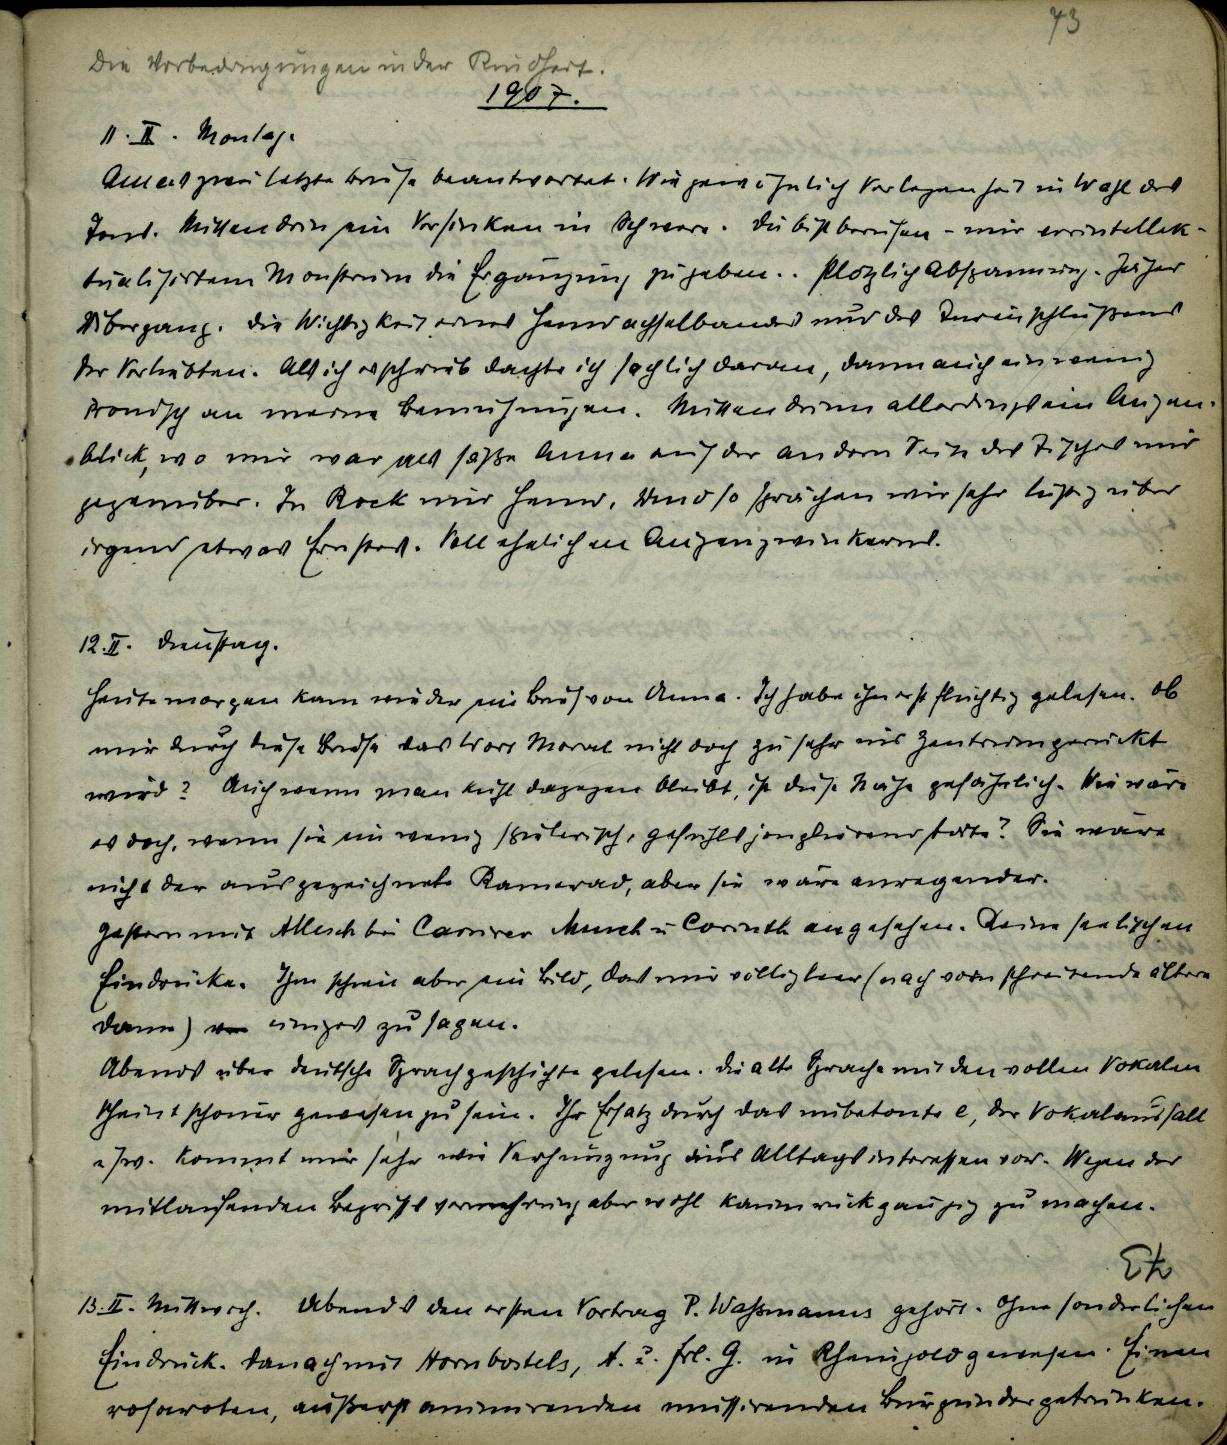 73
Die Vorbedingungen in der Kindheit.
1907.
11. II. Montag.
Annas zwei letzte Briefe beantwortet. Wie gewöhnlich Verlegenheit in Wahl des
Tons. Mittendrin ein Versinken in Schwere. Du bist berufen – mir verintellek-
tualisirtem Monstrum die Ergänzung zu geben.. Plötzlich Abspannung. Jäher
Übergang. Die Wichtigkeit eines Hemdachselbandes und des Ineinschließens
der Verliebten. Als ich es schrieb dachte ich sachlich daran, dann auch ein wenig
ironisch an meine Bemühungen. Mittendrinn allerdings ein Augen-
blick, wo mir war als säße Anna auf der andern Seite des Tisches mir
gegenüber. In Rock und Hemd. Und so sprächen wir sehr lustig über
irgend etwas Ernstes. Voll ehelichen Augenzwinkerns.
12. II. Dienstag.
Heute morgen kam wieder ein Brief von Anna. Ich habe ihn erst flüchtig gelesen. Ob
mir durch diese Briefe das Wort Moral nicht doch zu sehr ins Zentrum gerückt
wird? Auch wenn man kühl dagegen bleibt, ist diese Nähe gefährlich. Wie wäre
es doch, wenn sie ein wenig spielerisch, gefühlsjonglierend täte? Sie wäre
nicht der ausgezeichnete Kamerad, aber sie wäre anregender.
Gestern mit Allesch bei Cassirer Munch u Corinth angesehen. Keine seelischen
Eindrücke. Ihm schien aber ein Bild, das mir völlig leer (nach vorn schreitende ältere
Dame) einiges zu sagen.
Abends über deutsche Sprachgeschichte gelesen. Die alte Sprache mit den vollen Vokalen
scheint schöner gewesen zu sein. Ihr Ersatz durch das unbetonte e, der Vokalausfall
usw. kommt mir sehr wie Verhunzung aus Alltagsinteressen vor. Wegen der
mitlaufenden Begriffsvermehrung aber wohl kaum rückgängig zu machen.
13. II. Mittwoch. Abends den ersten Vortrag P. Waßmanns gehört. Ohne sonderlichen
Eindruck. Danach mit Hornbostels, A. u. Frl. G. in Rheingold gewesen. Einen
rosaroten, äußerst animirenden mussirenden Burgunder getrunken.